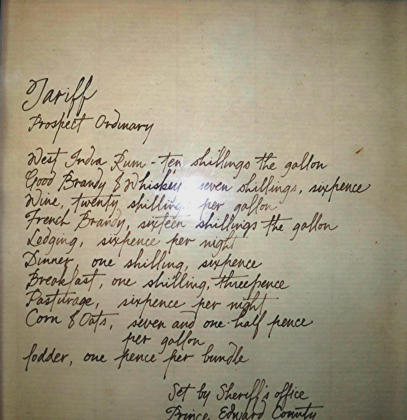 Tariff
Prospect Ordinary
West India Rum - ten shillings the gallon
Good Brandy & Whiskey seven shillings, sixpence
Wine, twenty shillings per gallon
French Brandy, sixteen shillings the gallon
Lodging, sixpence per night
Dinner, one shilling, sixpence
Breakfast, one shilling, threepence
Pasturage, sixpence per night
Corn & Oats, seven and one-half pence
per gallon
fodder, one pence per bundle
Set by Sheriff's office
Prince Edward County